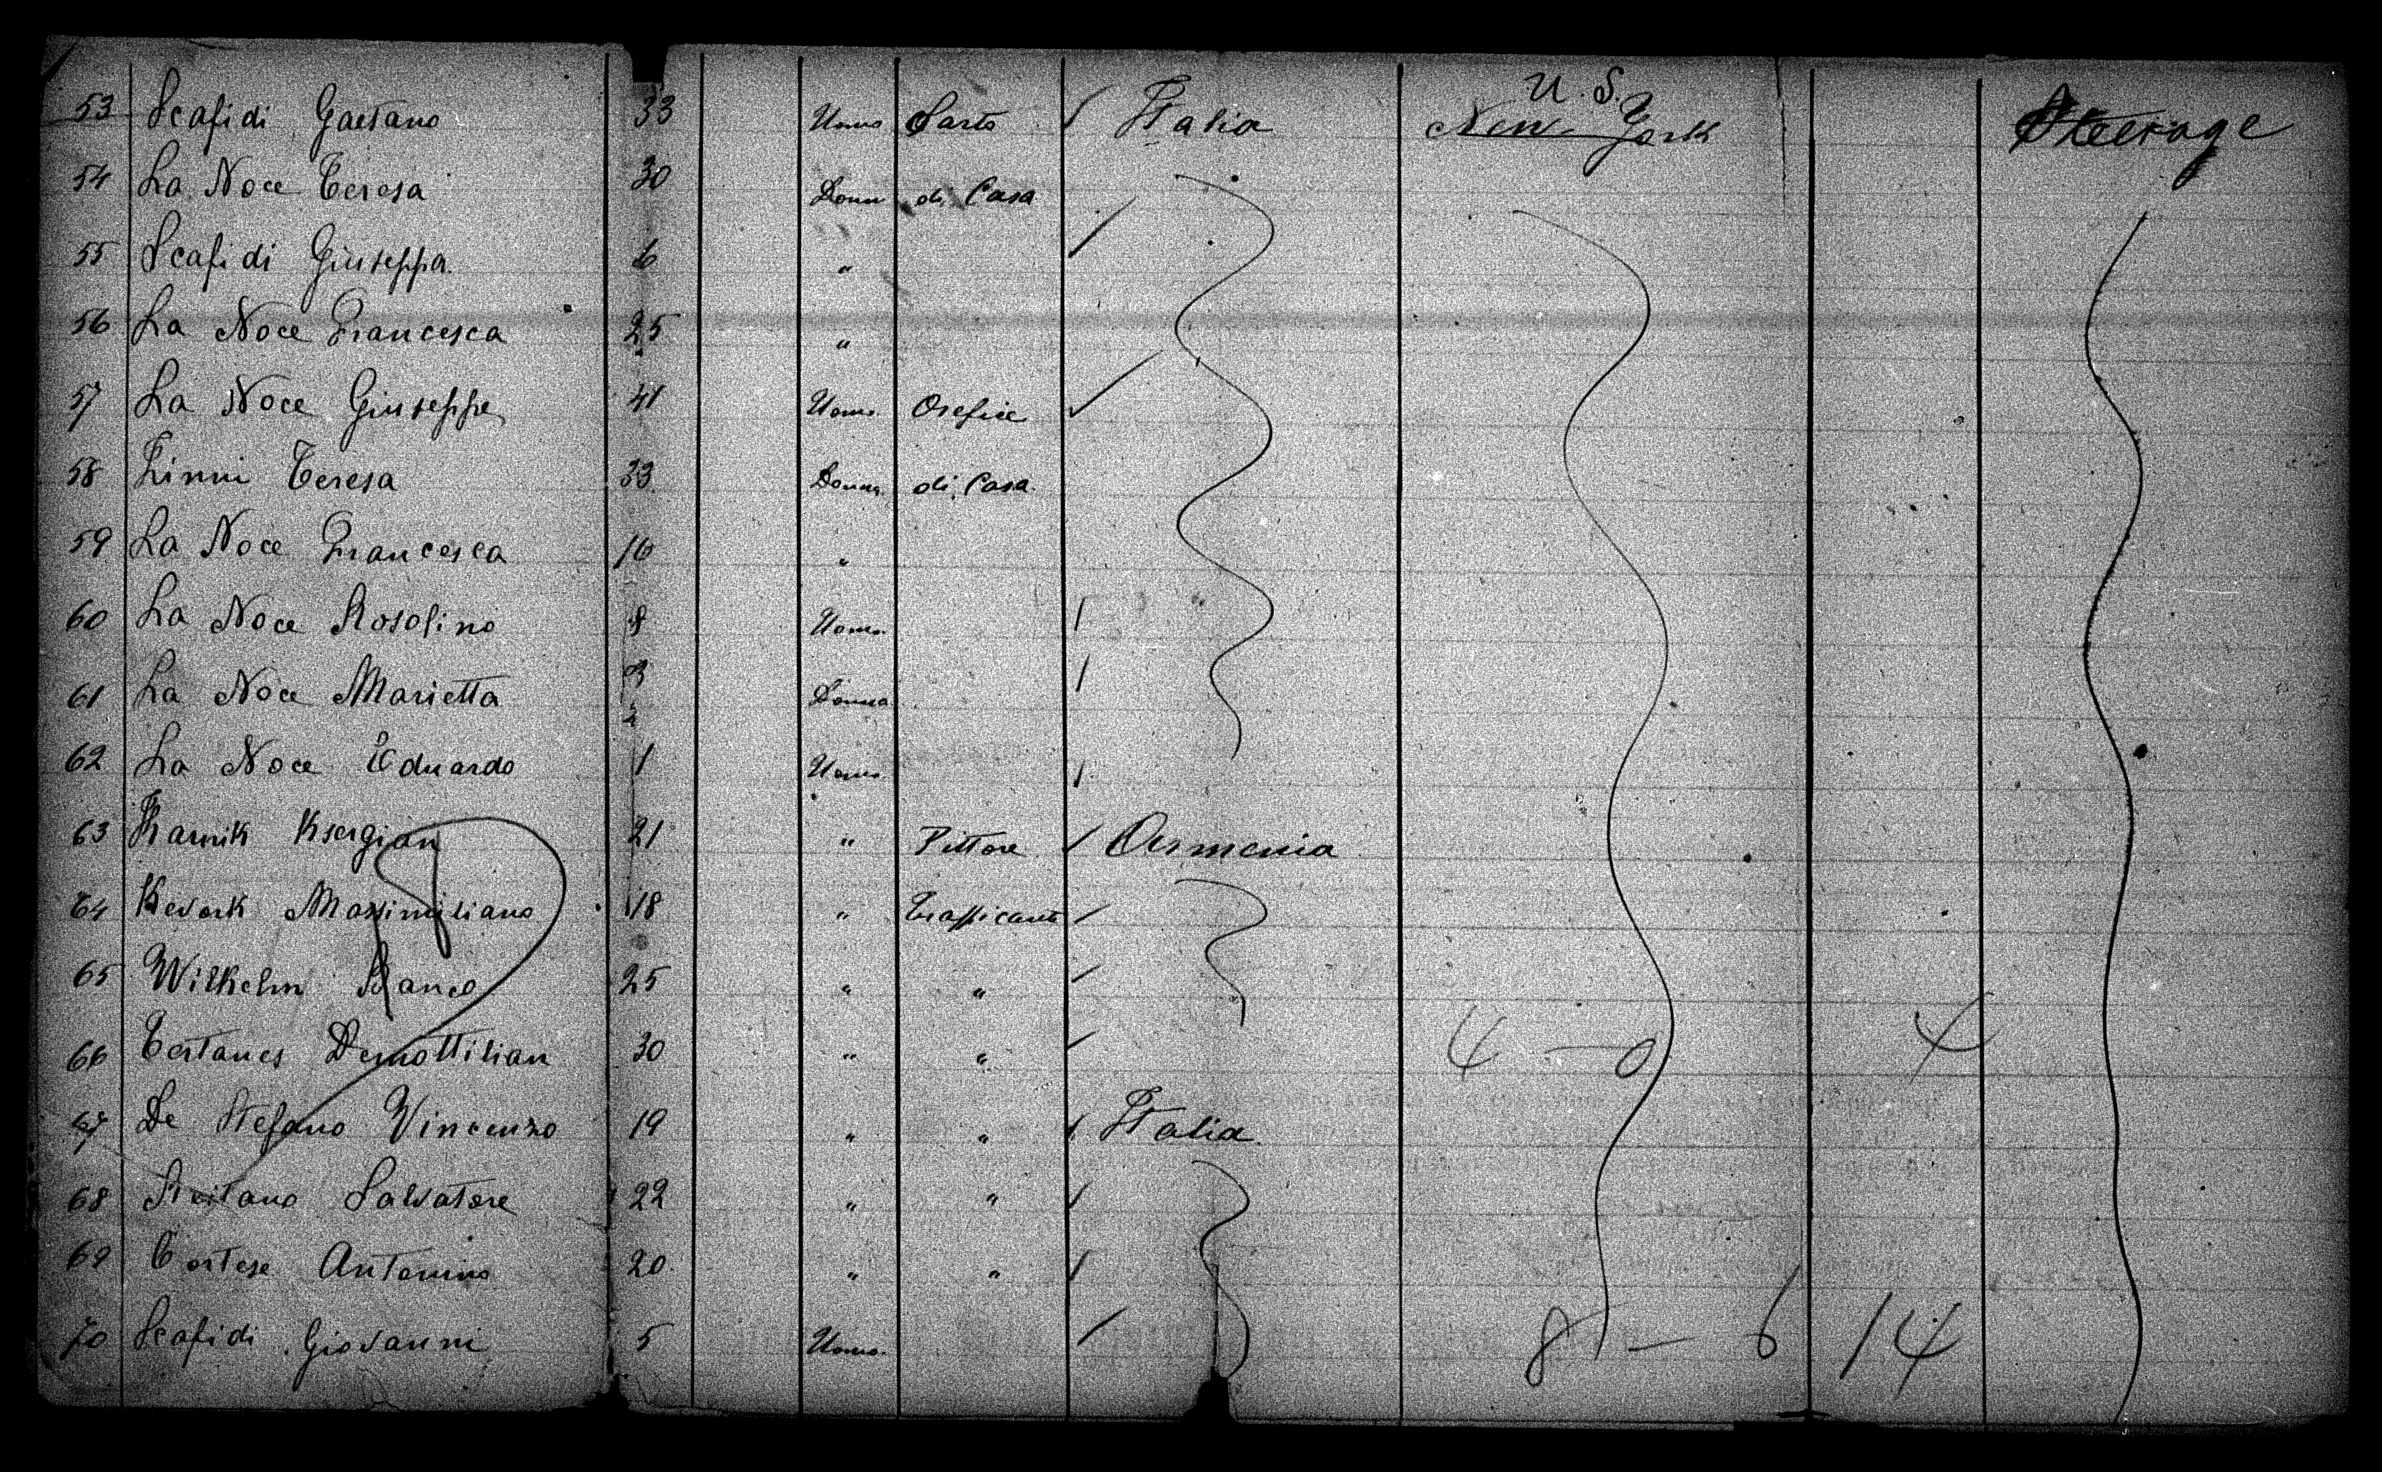 U. S.
53 Scafidi Gaetano 33 Uomo Sarto Italia New York Steerage
54 La Noce Teresa 30 Donn di Casa
55 Scafidi Giuseppa 6 "
56 La Noce Francesca 25 "
57 La Noce Giuseppe 41 Uomo Orefice
58 Zinni Teresa 33 Donna di Casa
59 La Noce Francesca 16 "
60 La Noce Rosolino 8 Uomo
61 La Noce Marietta 3 Donna
2
62 La Noce Eduardo 1 Uomo
63 Karnik Ksergian 21 " Pittore Armenia
64 Kevork Massimiliano 18 " Trafficante
65 Wilhelm 25 " "
66 30 " " 4 – 0 4
67 De Stefano Vincenzo 19 " " Italia
68 Reitano Salvatore 22 " "
69 Cortese Antonino 20 " "
70 Scafidi Giovanni 5 Uomo 8 – 6 14